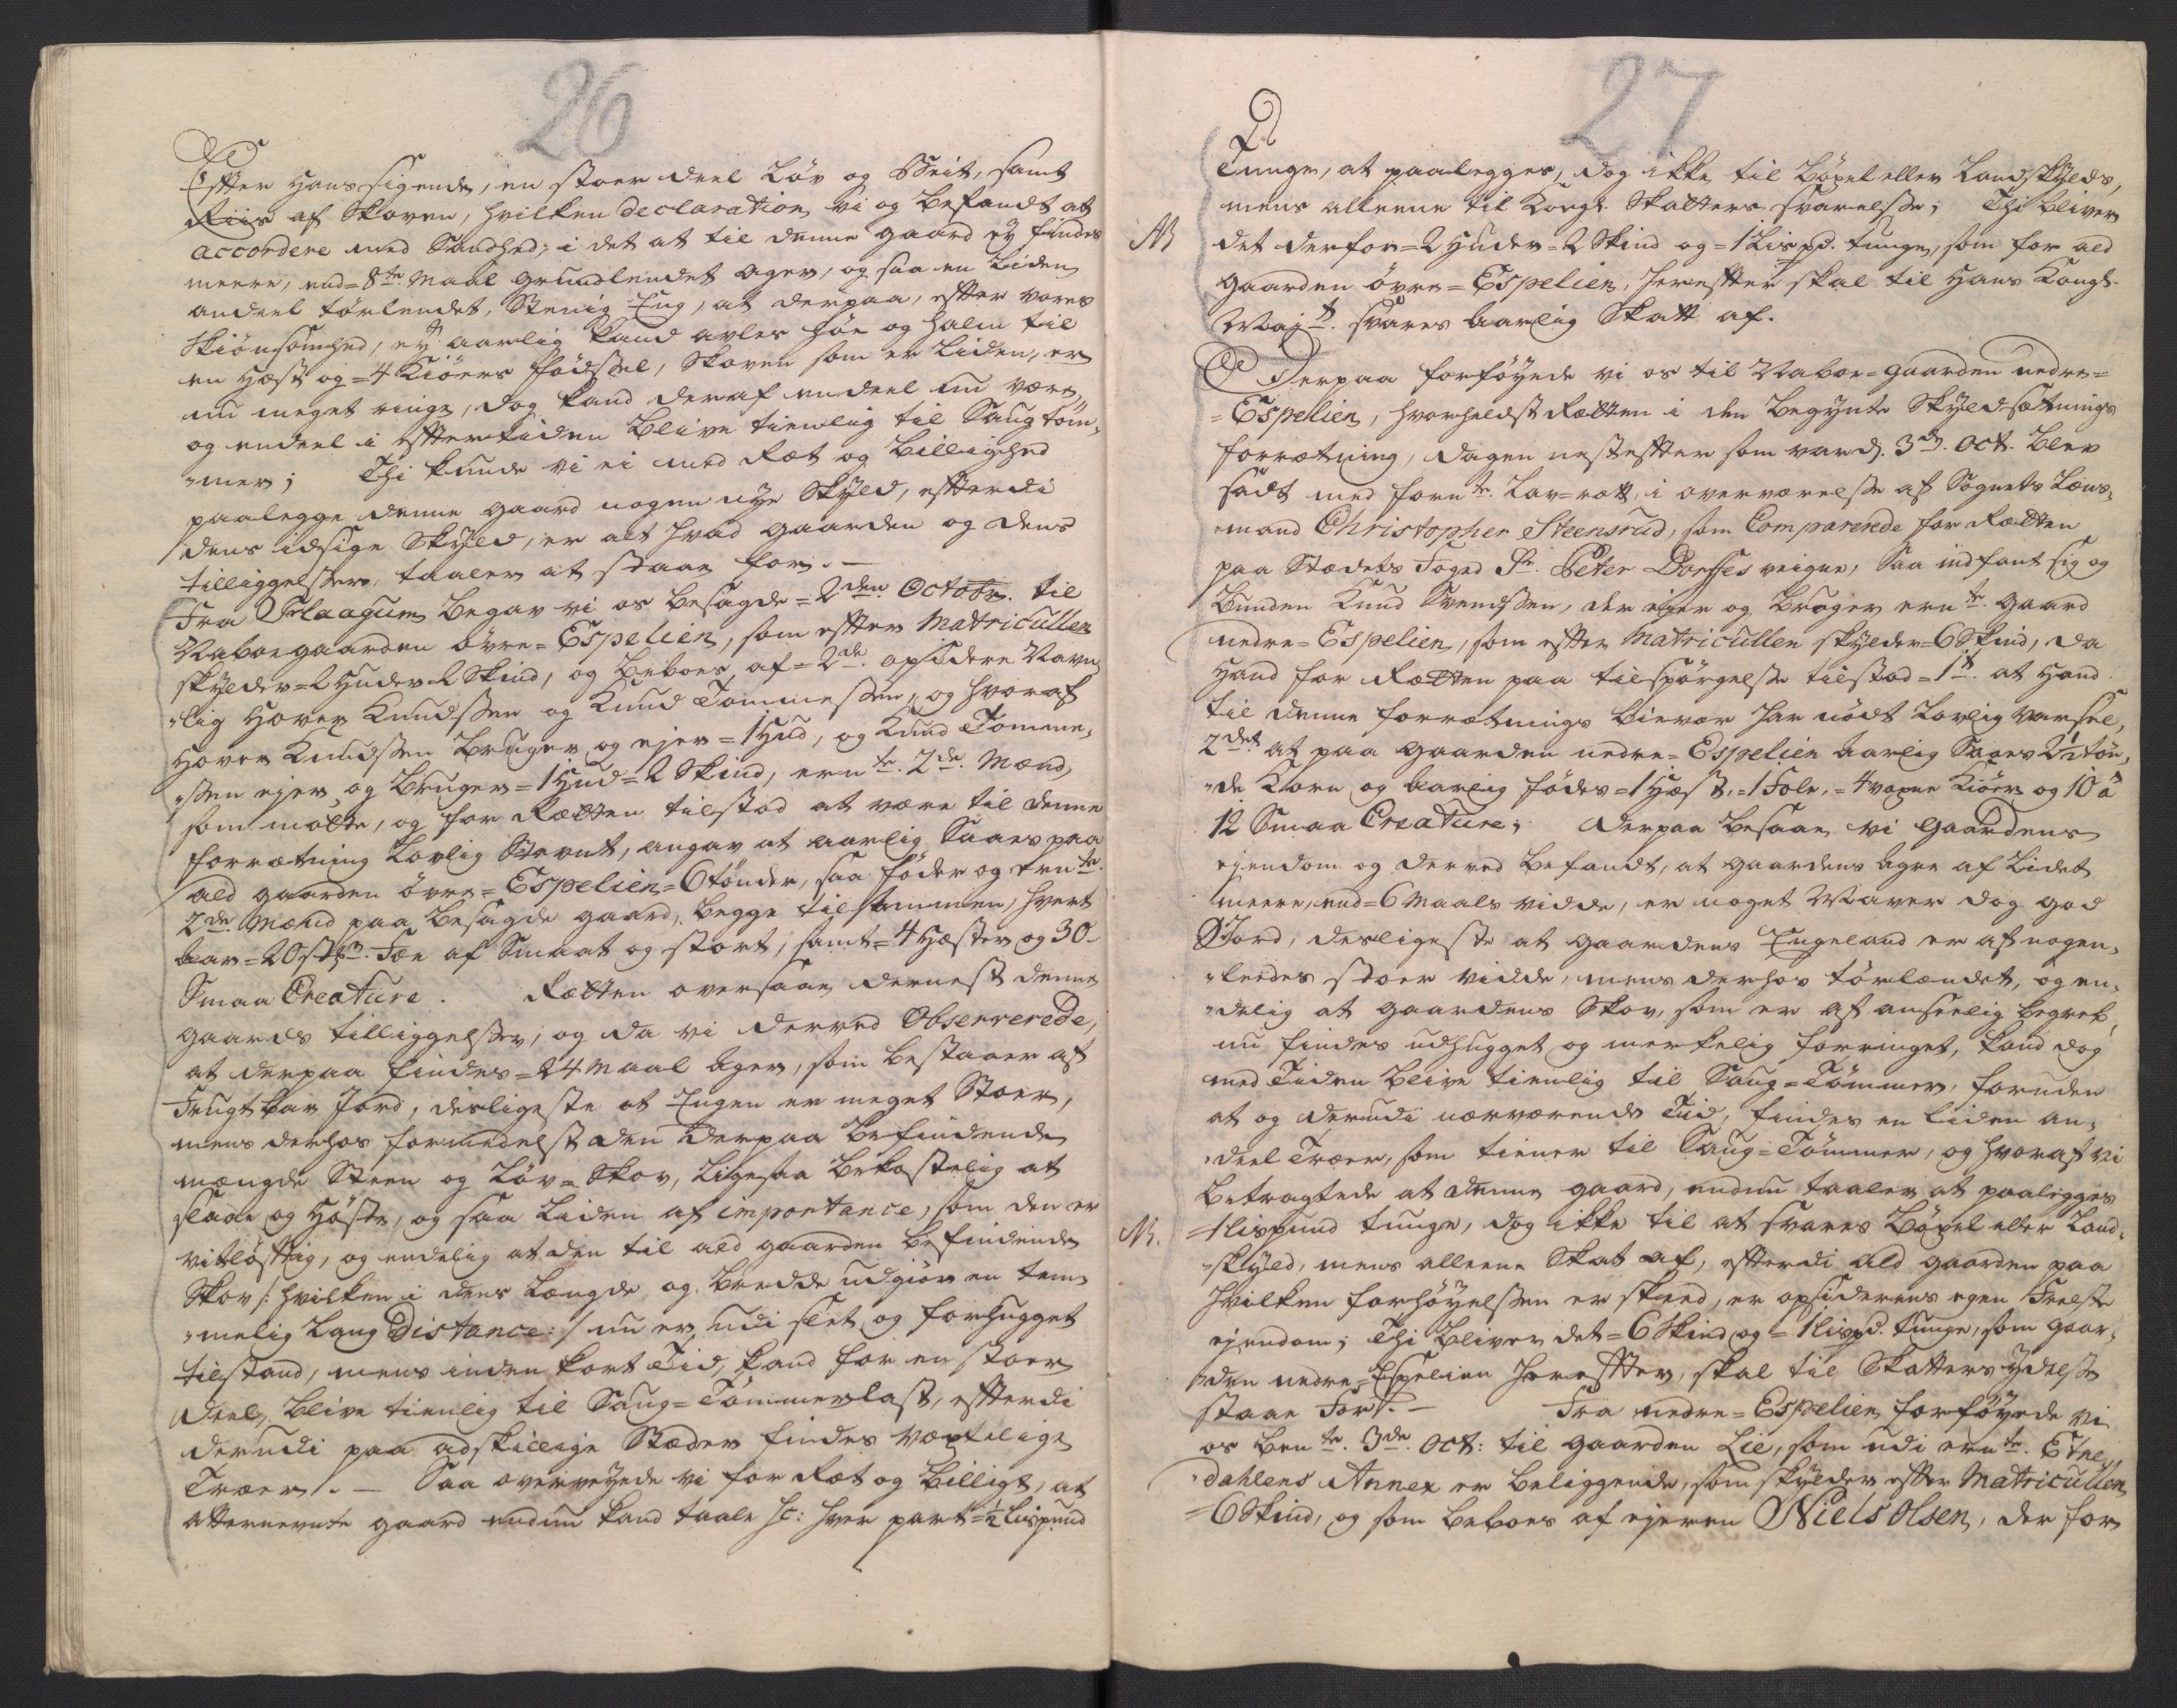 26
Efter hans sigende, en stoer deel Løv og Beit, samt
Riis af Skoven, hvilken declaration vi og befandt at
accordere med Sandhed; i det at til denne gaard ey findes
meere, end=8te Maal grundlendet ager, og saa en Liden
andeel tørlendet, Stenig Eng, at derpaa, efter vores
Skiønsomhed, ey aarlig kand avles høe og halm til
en Hæst og=4 Kiøers fødssel, Skoven som er Liden, er
nu meget ringe, dog kand deraf endeel nu være,
og endeel i efftertiden blive tienlig til Saugtøm¬
"mer; Thi kunde vi ei med Ret og billighed
paalegge denne gaard nogen nye Skyld, efterdi
dens idsige Skyld, er alt hvad gaarden og dens
tilliggelsser, taaler at staae for. —
Fra Flaagum begav vi os besagde=2den Octobr. til
Naboegaarden øvre=Espelien, som efter Matricullen
skylder=2 Huder=2 Skind, og beboes af=2de opsidere Navn¬
"lig Hover Knudssen og Knud Tommessen, og hvoraf
Hover Knudssen bruger og ejer=1 Hud, og Knud Tomme¬
"ssen ejer og bruger=1 Hud=2 Skind, ernte 2de Mænd,
som møtte, og for Rætten tilstod at være til denne
forrætning Lovlig Stevnt, angav at aarlig Saaes paa
ald gaarden øvre=Espelien=6 tønder, saa føder og ernte
2de Mænd paa besagde gaard, begge tilsammen, hvert
aar=20 stkr. Fæe af Smaat og stort, samt=4 Hæster og 30
Smaa Creature. Rætten oversaae dernest denne
gaards tilliggelsser, og da vi derved Observerede,
at derpaa findes=24 Maal ager, som bestaaer af
Frugtbar Jord, desligeste at Engen er meget Stoer,
mens derhos formedelst den derpaa befindende
mængde Steen og Løv=Skov, ligesaa bekostelig at
slaae og Høste, og saa Liden af importance, som den er
vitløftig, og endelig at den til ald gaarden befindende
Skov /: hvilken i dens Længde og bredde udgiør en tem¬
"melig Lang Distance :/ nu er udi slet og forhugget
tilstand, mens inden kort Tid, kand for en stoer
deel, blive tienlig til Saug=Tømmerlast, efterdi
derudi paa adskillige Stæder findes voxtelige
Træer. — Saa overveyede vi for Ret og billigt, at
afternevnte gaard endnu kand taale sc: hver part=½ Lispund
27
Tunge, at paalegges, dog ikke til bøxel eller Landskylds,
mens alleene til Kongl. Skatters svarelsse; Thi bliver
NB det derfor=2 Huder=2 Skind og=1 Lispd. tunge, som for ald
gaarden øvre=Espelien, herefter skal til Hans Kongl.
Majt. svares aarlig Skatt af.
Derpaa forføyede vi os til Naboe=gaarden nedre=
=Espelien, hvorheldst Rætten i den begynte Skyldsætnings
forrætning, dagen nestefter som var d. 3de Oct. blev
sadt med fornte Lav=rett, i overværelsse af Sognets Lens¬
"mand Christopher Steensrud, som Comparerede for Rætten
paa Stædets Foged Sr. Peter Dorffes veigne, Saa indfant sig og
bunden Knud Svendssen, der ejer og bruger ernte gaard
nedre=Espelien, som efter Matricullen skylder=6 Skind, da
Hand for Rætten paa tilspørgelsse tilstod=1t. at Hand
til denne forrætnings bievær har nødt Lovlig Varsel,
2det at paa gaarden nedre=Espelien aarlig Saaes 2½ tøn¬
"de Korn og aarlig fødes=1 Hæst,=1 Fole,=4 voxne Kiøer og 10 à
12 Smaa Creature; Derpaa besaae vi gaardens
ejendom og derved befandt, at gaardens agre af Lidet
meere, end=6 Maals vidde, er noget Maver dog god
Jord, desligeste at gaardens Engeland er af nogen¬
"leedes stoer vidde, mens derhos tørlændet, og en¬
"delig at gaardens Skov, som er af anseelig begreb,
nu findes udhugget og merkelig forringet, kand dog
med Tiden blive tienlig til Saug=Tømmer, foruden
at og derudi nærværende Tid, findes en liden an¬
"deel Træer, som tiener til Saug=Tømmer, og hvoraf vi
betragtede at denne gaard, endnu taaler at paalegges
NB. =1 Lispund tunge, dog ikke til at svares bøxel eller Land¬
"skyld, mens alleene Skat af, efterdi ald gaarden paa
hvilken forhøyelssen er skeed, er opsiderens egen Freelse
ejendom; Thi bliver det=6 Skind og=1 Lispd. tunge, som gaar¬
"den nedre=Espelien herefter, skal til Skatters ydelsse
staae for. — Fra nedre=Espelien forføyede vi
os bente 3de Oct: til gaarden Lie, som udi ernte Etne¬
"dahlens Annex er beliggende, som skylder efter Matricullen
=6 Skind, og som beboes af ejeren Niels Olsen, der for